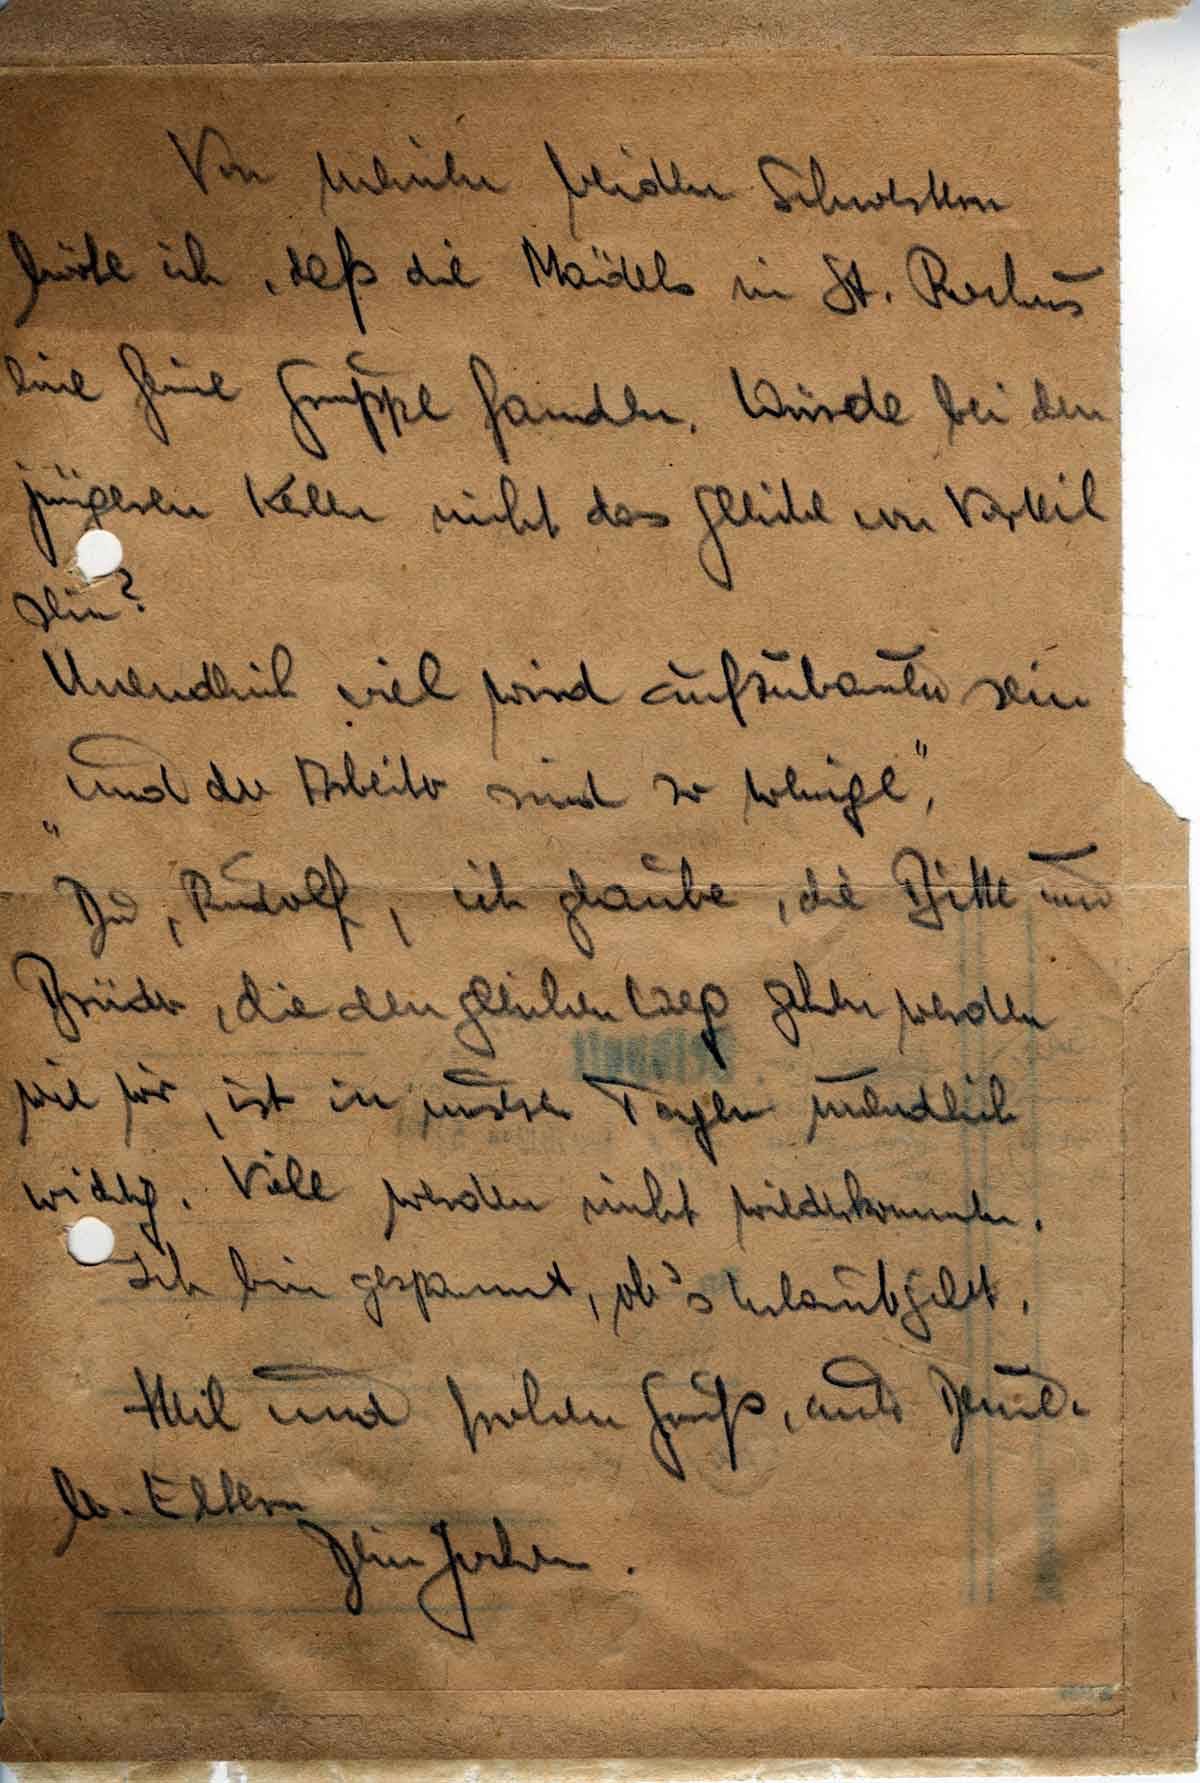 Von meinen beiden Schwestern
hörte ich, daß die Mädels in St. Rochus
eine feine Gruppe fanden. Würde bei den
jüngeren Kellen nicht das gleiche von Vorteil
sein?
Unendlich viel wird aufzubauen sein
"und der Arbeiter sind so wenige".
Du, Rudolf, ich glaube, die Bitte um
Brüder, die den gleichen Weg gehen werden
wie wir, ist in unseren Tagen unendlich
wichtig. Viele werden nicht wiederkommen.
Ich bin gespannt, ob's Urlaub gibt.
Heil und frohen Gruß, auch Deinen
lb. Eltern
Dein Jochen.